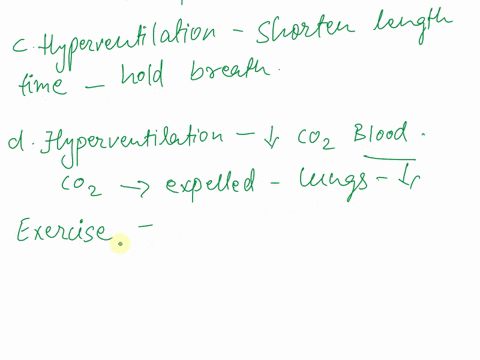 c. Hyperventilation - shorten length
time - hold breath.
d. Hyperventilation - ↓ CO2 Blood.
CO2 → expelled - lungs - ↓
Exercise -